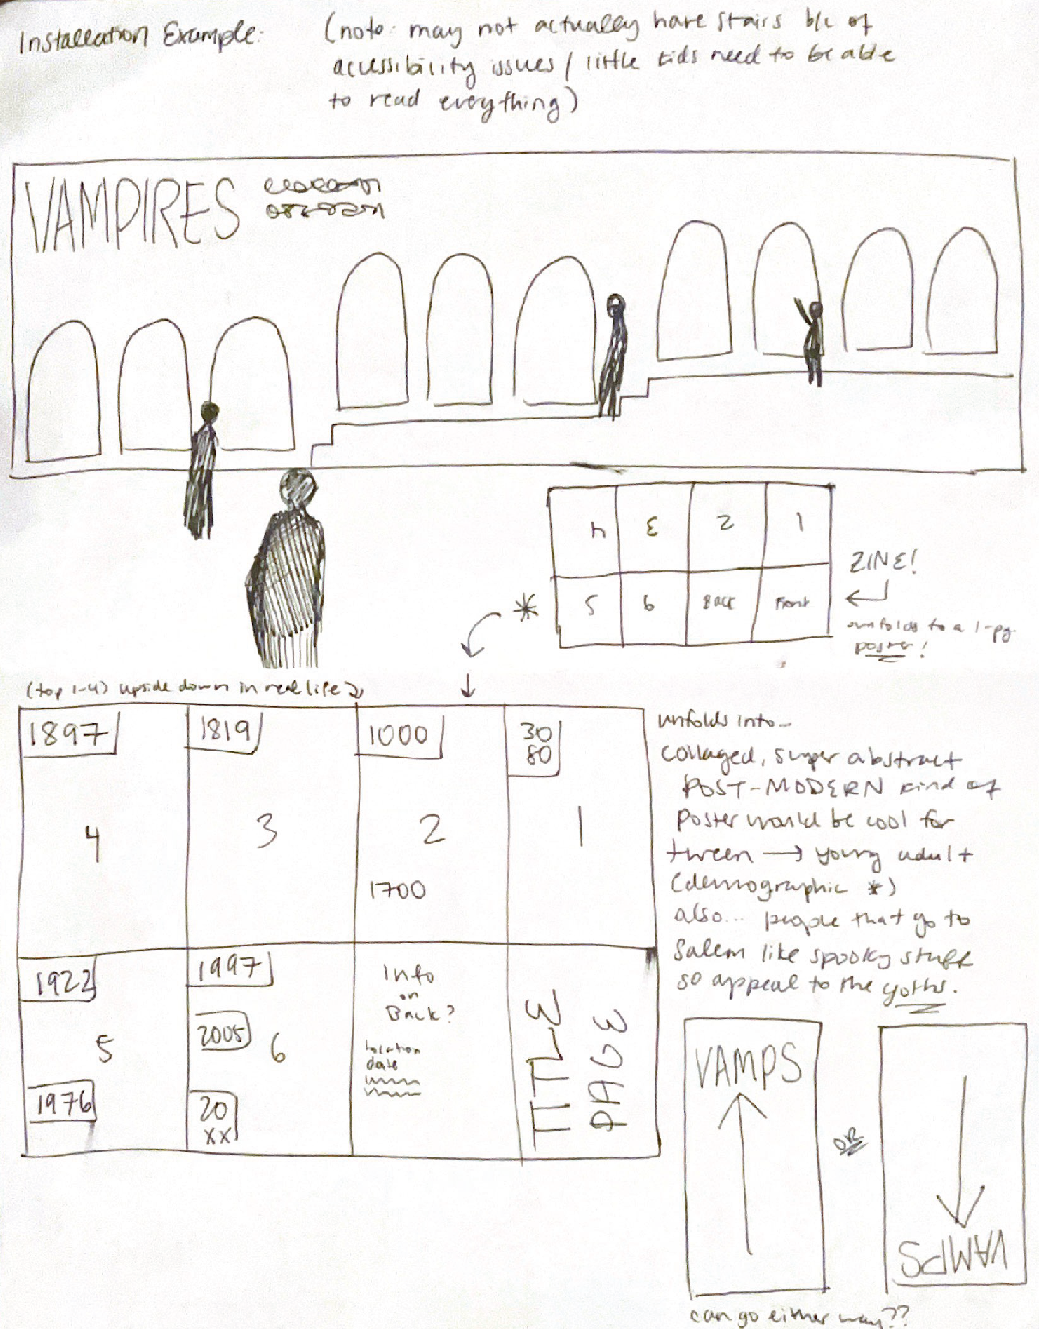 Installation Example:
(note: may not actually have stairs b/c of
accessibility issues / little kids need to be able
to read everything)
VAMPIRES
4 3 2 1
5 6 Back Front
ZINE!
unfolds to a 1-pg
poster!
*
(top 1-4) upside down in real life
1897
4
1819
3
1000
2
1700
30
80
1
1922
5
1976
1997
2005
6
20
XX
Info
on
Back?
location
date
TITLE
PAGE
unfolds into...
collaged, super abstract
POST-MODERN kind of
poster would be cool for
tween → young adult
(demographic *)
also... people that go to
Salem like spooky stuff
so appeal to the goths.
VAMPS
OR
VAMPS
can go either way??